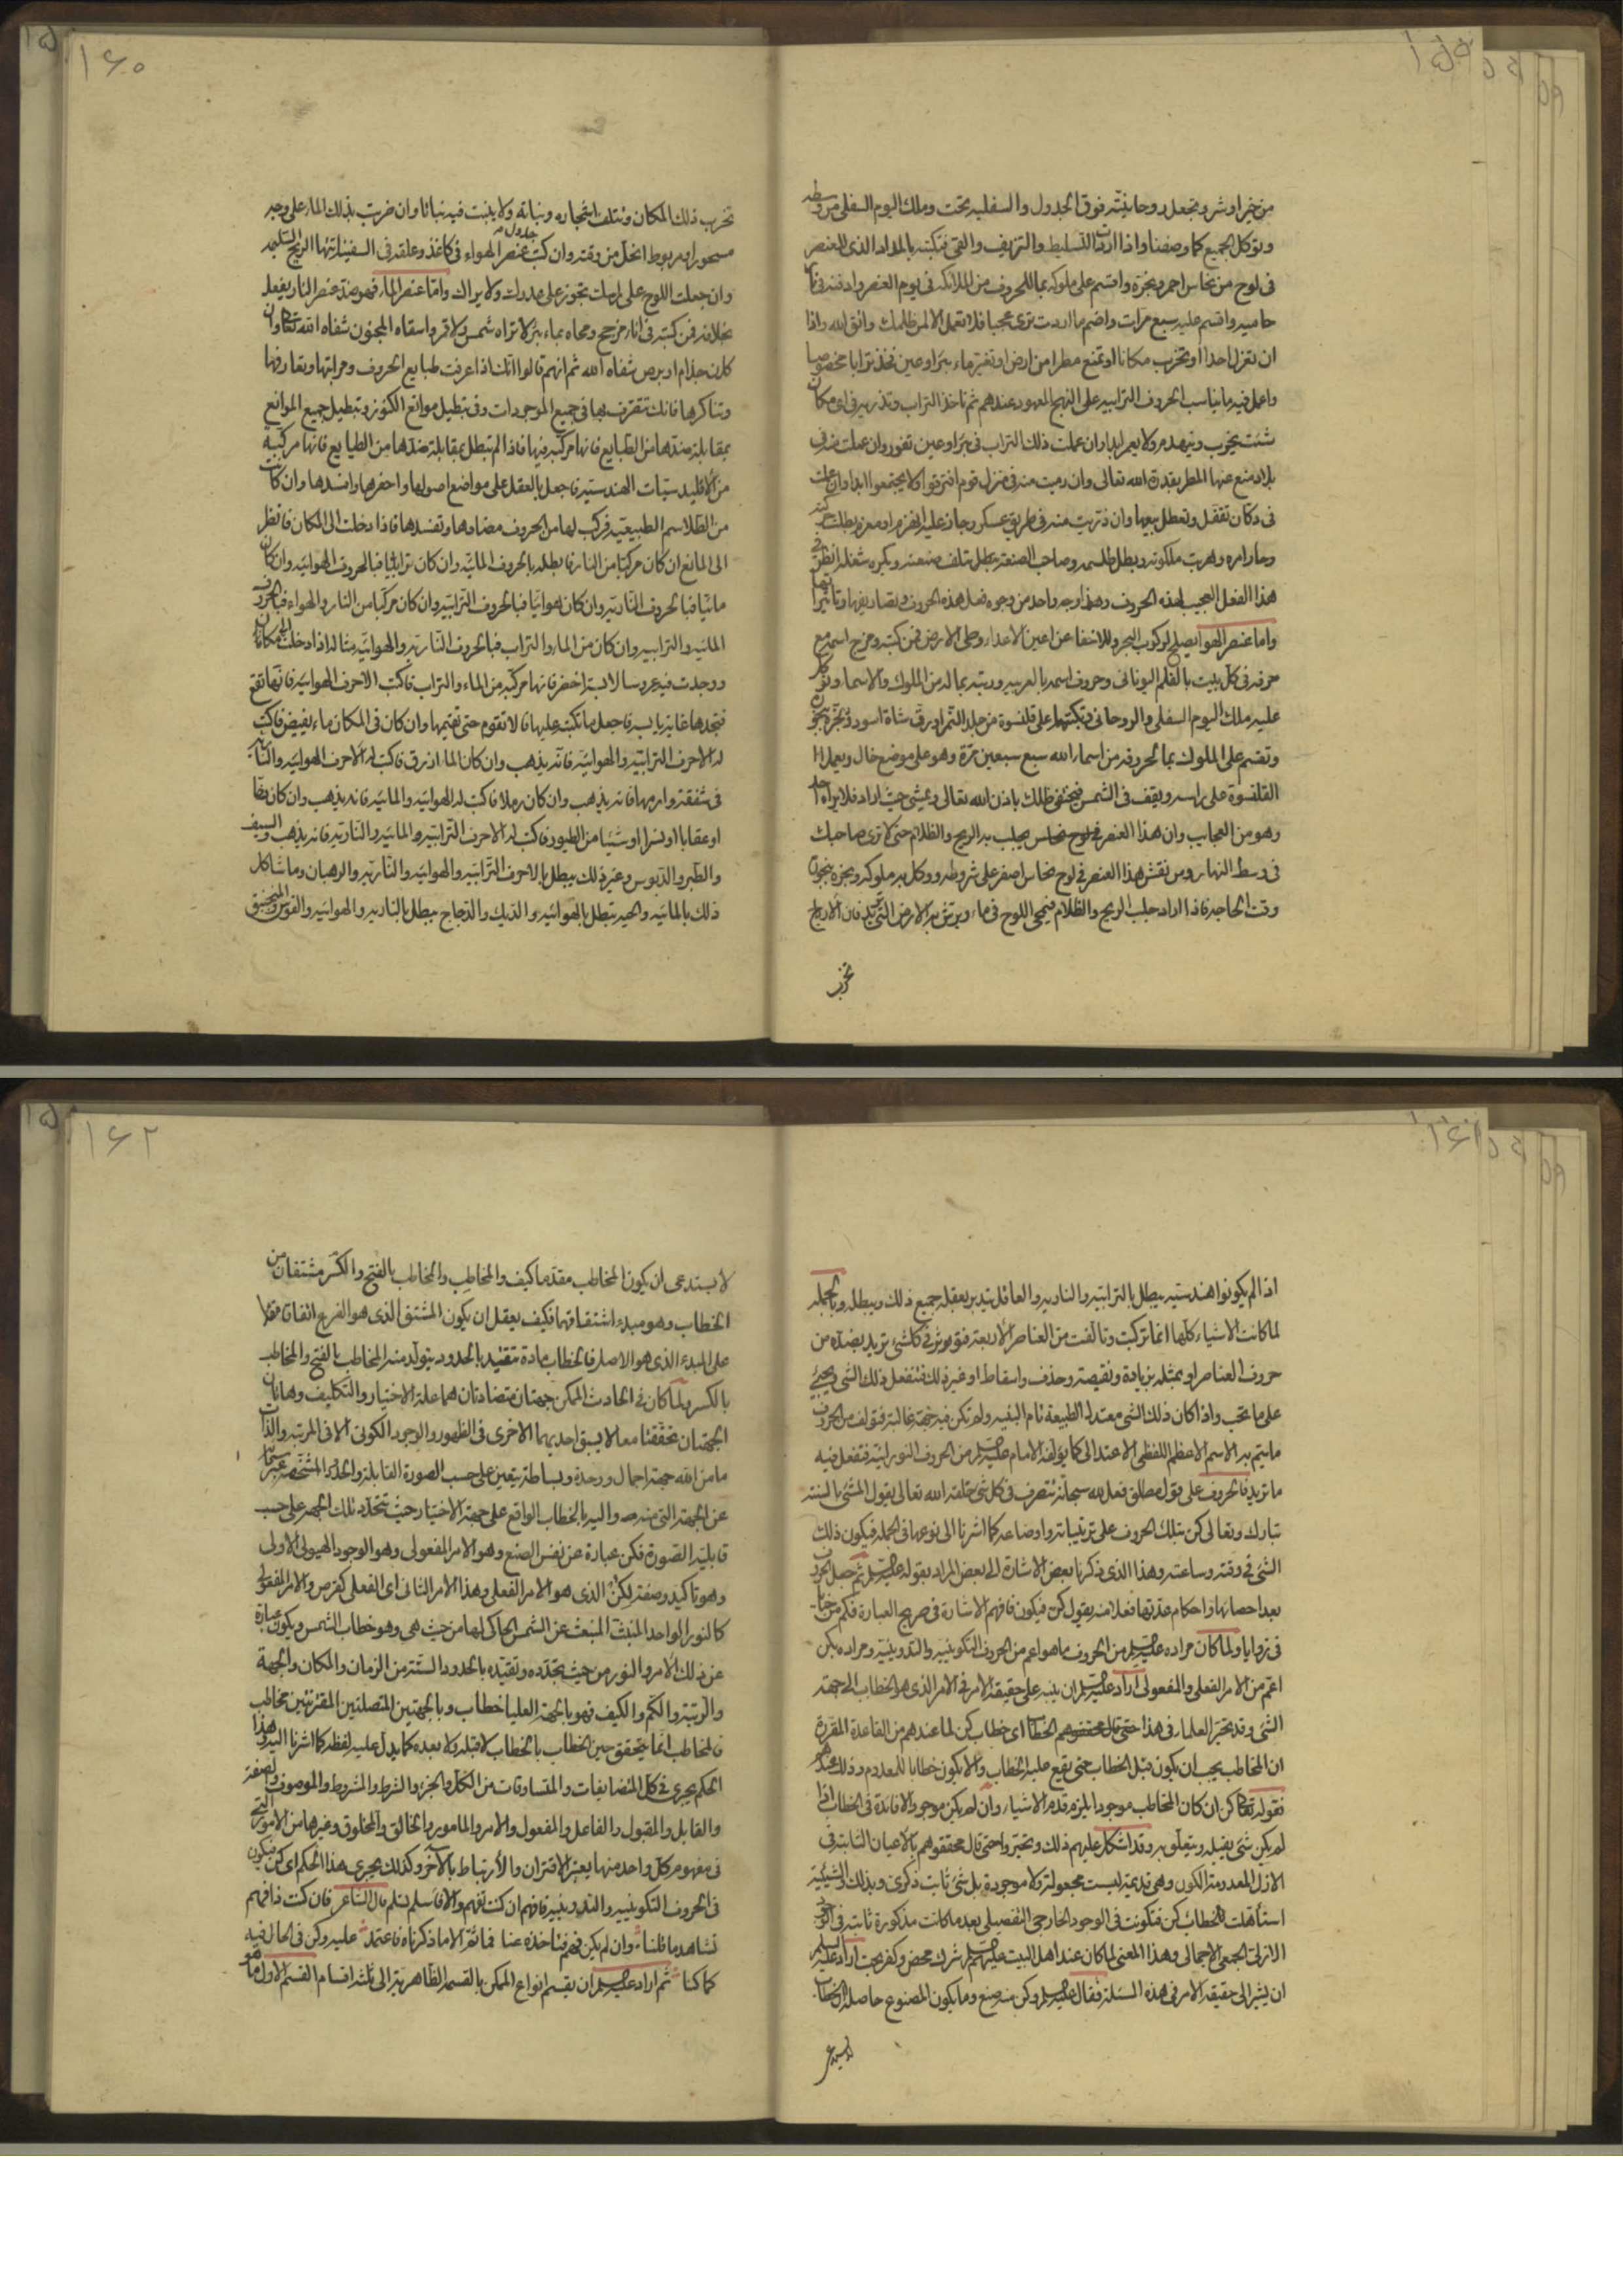 ١٥٩
من خير او شر وتجعل روحانيته فوق الجدول والسفليه تحت وملك اليوم السفلى من وسطه
وتوكل الجميع كما وصفنا واذا اردت التسليط والنزيف والقئ فتكتبه بالمداد الذى للعنصر
فى لوح من نحاس احمر وبخره واقسم على ملوكه بما للحروف من الملائكه فى يوم العنصر وادفنه فى نار
حاميه واقسم عليه سبع مرات واضم ما اردت ترى عجبا فلا تعمل الا لمن ظلمك واتق الله واذا
ان تعزل احدا او تخرب مكانا او تمنع مطرا من ارض او تغير ماء بئر او عين فخذ ترابا مخصوصا
واعمل فيه ما يناسب الحروف الترابيه على النهج المعهود عندهم ثم تاخذ التراب وتذريه فى اى مكان
شئت يخرب وينهدم ولا يعمر ابدا وان عملت ذلك التراب فى بئر او عين تغور وان عملت منه فى
بلاد منع عنها المطر بقدرة الله تعالى وان رميت منه فى منزل قوم افترقوا ولا يجتمعوا ابدا وان عملت
فى دكان تقفل وتعطل بيعها وان ذريت منه فى طريق عسكر وجاز عليه انهزم او معزم بطلت حركته
وحار امره وهربت ملكوته وبطل طلسمه وصاحب الصنعة يبطل تلف صنعته ويكره شغله انظر فى
هذا الفعل العجيب لهذه الحروف وهذا وجه واحد من وجوه فعل هذه الحروف وتصاريفها وتاثيراتها
واما عنصر الهوا يصلح لركوب البحر وللاخفا عن اعين الاعداء وطى الارض فمن كتبه ومزج اسمه مع
حرفه فى كل بيت بالقلم اليونانى وحروف اسمه بالعربيه ورتبه بما له من الملوك والاسماء وتوكل
عليه ملك اليوم السفلى والروحانى وتكتبها على قلنسوة من جلد النمر او رق شاة اسود وتبخره ببخور
وتقسم على الملوك بما لحروفه من اسماء الله سبع سبعين مرة وهو على موضع خال ويعمل
القلنسوة على راسه ويقف فى الشمس فيختفى ظلك باذن الله تعالى ويمشى حيث اراد فلا يراه احد
وهو من العجايب وان هذا العنصر فى لوح نحاس يجلب به الريح والظلام حتى لا ترى صاحبك
فى وسط النهار ومن نقش هذا العنصر فى لوح نحاس اصفر على شروطه ووكل به ملوكه وبخره ببخور
وقت الحاجه فاذا اراد جلب الريح والظلام فيمحى اللوح فى ماء ويرش به الارض التى تريد فان الارياح
تخرب
١٦٠
تخرب ذلك المكان وتتلف اشجاره ونباته ولا ينبت فيه نباتا وان ضربت بذلك الماء على وجه
مسحور او مربوط انحل من وقته وان كتبت جدول عنصر الهواء فى كاغذ وعلقه فى السفينة اتتها الريح السليمه
وان جعلت اللوح على ارملت تجوز على عدوك ولا يراك واما عنصر الماء فهو ضد عنصر النار يفعل
بخلافه فمن كتبه فى اناء زجاج ومحاه بماء بئر لا تراه شمس ولا قمر واسقاه المجنون شفاه الله تعالى وان
كان جذام او برص شفاه الله ثم انهم قالوا انك اذا عرفت طبايع الحروف ومراتبها وتعارفها
وتناكرها فانك تتصرف بها فى جميع الموجودات وفى تبطيل موانع الكنوز وتبطيل جميع الموانع
بمقابلة ضدها من الطبايع فانها مركبة فيها فاذا لم تبطل بمقابلة ضدها من الطبايع فانها مركبة
من الاقليدستيات الهندسيه فاجعل بالعقل على مواضع اصولها واحفرها وافسدها وان كانت
من الطلاسم الطبيعيه فركب لها من الحروف مضادها وتفسدها فاذا دخلت الى المكان فانظر
الى المانع ان كان مركبا من النار فابطله بالحروف المائيه وان كان ترابيا فبالحروف الهوائيه وان كان
مائيا فبالحروف الناريه وان كان هوائيا فبالحروف الترابيه وان كان مركبا من النار والهواء فبالحروف
المائيه والترابيه وان كان من الماء والتراب فبالحروف الناريه والهوائيه مثاله اذا دخلت الى مكان
ووجدت فيه عروسا لابسة اخضر فانها مركبه من الماء والتراب فاكتب الاحرف الهوائيه فانها تقع
فتجدها غايته يابسه فاجعل ما تكتبه عليها فلا تقوم حتى تقيمها وان كان فى المكان ماء يفيض فاكتب
له الاحرف الترابيه والهوائيه فانه يذهب وان كان الماء ازرق فاكتب له الاحرف الهوائيه والناريه
فى شقفة وارمها فانه يذهب وان كان رملا فاكتب له الهوائيه والمائيه فانه يذهب وان كان بقا
او عقابا او نسرا او شيئا من الطيور فاكتب له الاحرف الترابيه والمائيه والناريه فانه يذهب والسيف
والطبر والدبوس وغير ذلك يبطل بالاحرف الترابيه والهوائيه والناريه والرهبان وما شاكل
ذلك بالمائيه والحيه تبطل بالهوائيه والديك والدجاج يبطل بالناريه والهوائيه والقوس والمنجنيق
١٦١
اذا لم يكونوا هندسيه يبطل بالترابيه والناريه والعاقل يتدبر بعقله جميع ذلك ويبطله وبالجمله
لما كانت الاشياء كلها انما تركبت وتالفت من العناصر الاربعة فتوثر فى كل شئ تريد بضده من
حروف العناصر او بمثله بزيادة ونقيصة وحذف واسقاط او غير ذلك فتنفعل ذلك الشئ ويجيئ
على ما تحب واذا كان ذلك الشئ معتدل الطبيعة تام البنيه ولم تكن فيه جهة غالبة فتؤلف من الحروف
ما يتم به الاسم الاعظم اللفظى الاعتدالى كما يؤلفه الامام عليه السلام من الحروف النورانية فتفعل فيه
ما تريد فالحروف على قول مطلق فعل الله سبحانه تتصرف فى كل شئ خلقه الله تعالى يقول للشئ بالسنته
تبارك وتعالى كن بتلك الحروف على ترتيباته واوضاعه كما اشرنا الى نوعها فى الجمله فيكون ذلك
الشئ فى وقته وساعته وهذا الذى ذكرنا بعض الاشارة الى بعض المراد بقوله عليه السلام ثم جعل الحروف
بعد احصائها واحكام عدتها فعلا منه يقول كن فيكون فافهم الاشارة فى صريح العبارة فكم من خبايا
فى زوايا ولما كان مراده عليه السلام من الحروف ما هو اعم من الحروف التكوينيه والتدوينيه ومراده بكن
اعم من الامر الفعلى والمفعولى اراد عليه السلام ان ينبه على حقيقة الامر فى الامر الذى هو الخطاب الى جهة
الشئ وقد تحير العلماء فى هذا حتى قال محققوهم الخطاب اى خطاب كن لما عندهم من القاعدة المقررة
ان المخاطب يجب ان يكون قبل الخطاب حتى يقع عليه الخطاب والا يكون خطابا للمعدوم وذلك عندهم
فقوله تعالى كن ان كان المخاطب موجودا يلزم قدم الاشياء وان لم يكن موجودا لا فائدة فى الخطاب اذا
لم يكن شئ يقبله ويتعلق به وقد اشكل عليهم ذلك وتحيروا حتى قال محققوهم بالاعيان الثابتة فى
الازل المعدومة الكون وهى قديمة ليست مجعولة ولا موجودة بل شئ ثابت ذكرى وبذلك والشيئية
استأهلت لخطاب كن فتكونت فى الوجود الخارجى التفصيلى بعد ما كانت مذكورة ثابتة فى
الازلى الجمعى الاجمالى وهذا المعنى لما كان عند اهل البيت عليهم السلام شرك محض وكفر بحت اراد عليه السلام
ان يشير الى حقيقة الامر فى هذه المسئلة فقال عليه السلام وكن منه صنع وما يكون المصنوع حاصله ان الخطاب
لا يستدعى
١٦٢
لا يستدعى ان يكون المخاطب مقدما كيف والمخاطِب والمخاطب بالفتح والكسر مشتقان من
الخطاب وهو مبدء اشتقاقهما فكيف يعقل ان يكون المشتق الذى هو الفرع اتفاقا مقدما
على المبدء الذى هو الاصل فالخطاب مادة تتقيد بالحدود يتولد منه المخاطب بالفتح والمخاطب
بالكسر ولما كان فى الحادث الممكن جهتان متضادتان هما علة الاختيار والتكليف وهاتان
الجهتان تحققتا معا لا يسبق احديهما الاخرى فى الظهور والوجود الكونى الا فى المرتبة والذات
ما من الله جهة اجمال ووحدة وبساطة يتعين على حسب الصورة القابلة والحدود المشخصة عبر
عن الجهة التى منه واليه بالخطاب الواقع على جهة الاختيار حيث تتحدد تلك الجهة على حسب
قابلية الصورة فكن عبارة عن نفس الصنع وهو الامر المفعولى وهو الوجود الهيولى الاولى
وهو تاكيد وصفة لكن الذى هو الامر الفعلى وهذا الامر الثانى اى الفعلى كفرص والامر المفعولى
كالنور الواحد المنبث المنبعث عن الشمس الحاكى لها من حيث هى وهو خطاب الشمس ويكون عبارة
عن ذلك الامر والنور من حيث تحدده وتقيده بالحدود الستة من الزمان والمكان والجهة
والرتبة والكم والكيف فهو بالجهة العليا خطاب وبالجهتين المتصلتين المقترنتين مخاطب
فالمخاطب انما يتحقق حين الخطاب بالخطاب لا قبله ولا بعده كما يدل عليه لفظه كما اشرنا اليه وهذا
الحكم يجرى فى كل المتضايفات والمتساوقات من الكل والجزء والشرط والمشروط والموصوف والصفة
والقابل والمقبول والفاعل والمفعول والامر والمامور والخالق والمخلوق وغيرها من الامور التى
فى مفهوم كل واحد منها يعتبر الاقتران والارتباط بالآخر وكذلك يجرى هذا الحكم اى كن فيكون
فى الحروف التكوينيه والتدوينيه فافهم ان كنت تفهم والا فاسلم تسلم قال الشاعر فان كنت ذا فهم
تشاهد ما قلنا وان لم يكن فهم فتاخذه عنا فما ثم الا ما ذكرناه فاعتمد عليه وكن فى الحال فيه
كما كنا ثم اراد عليه السلام ان يقسم انواع الممكن بالقسمة الظاهرية الى ثلثة اقسام القسم الاول ما هو